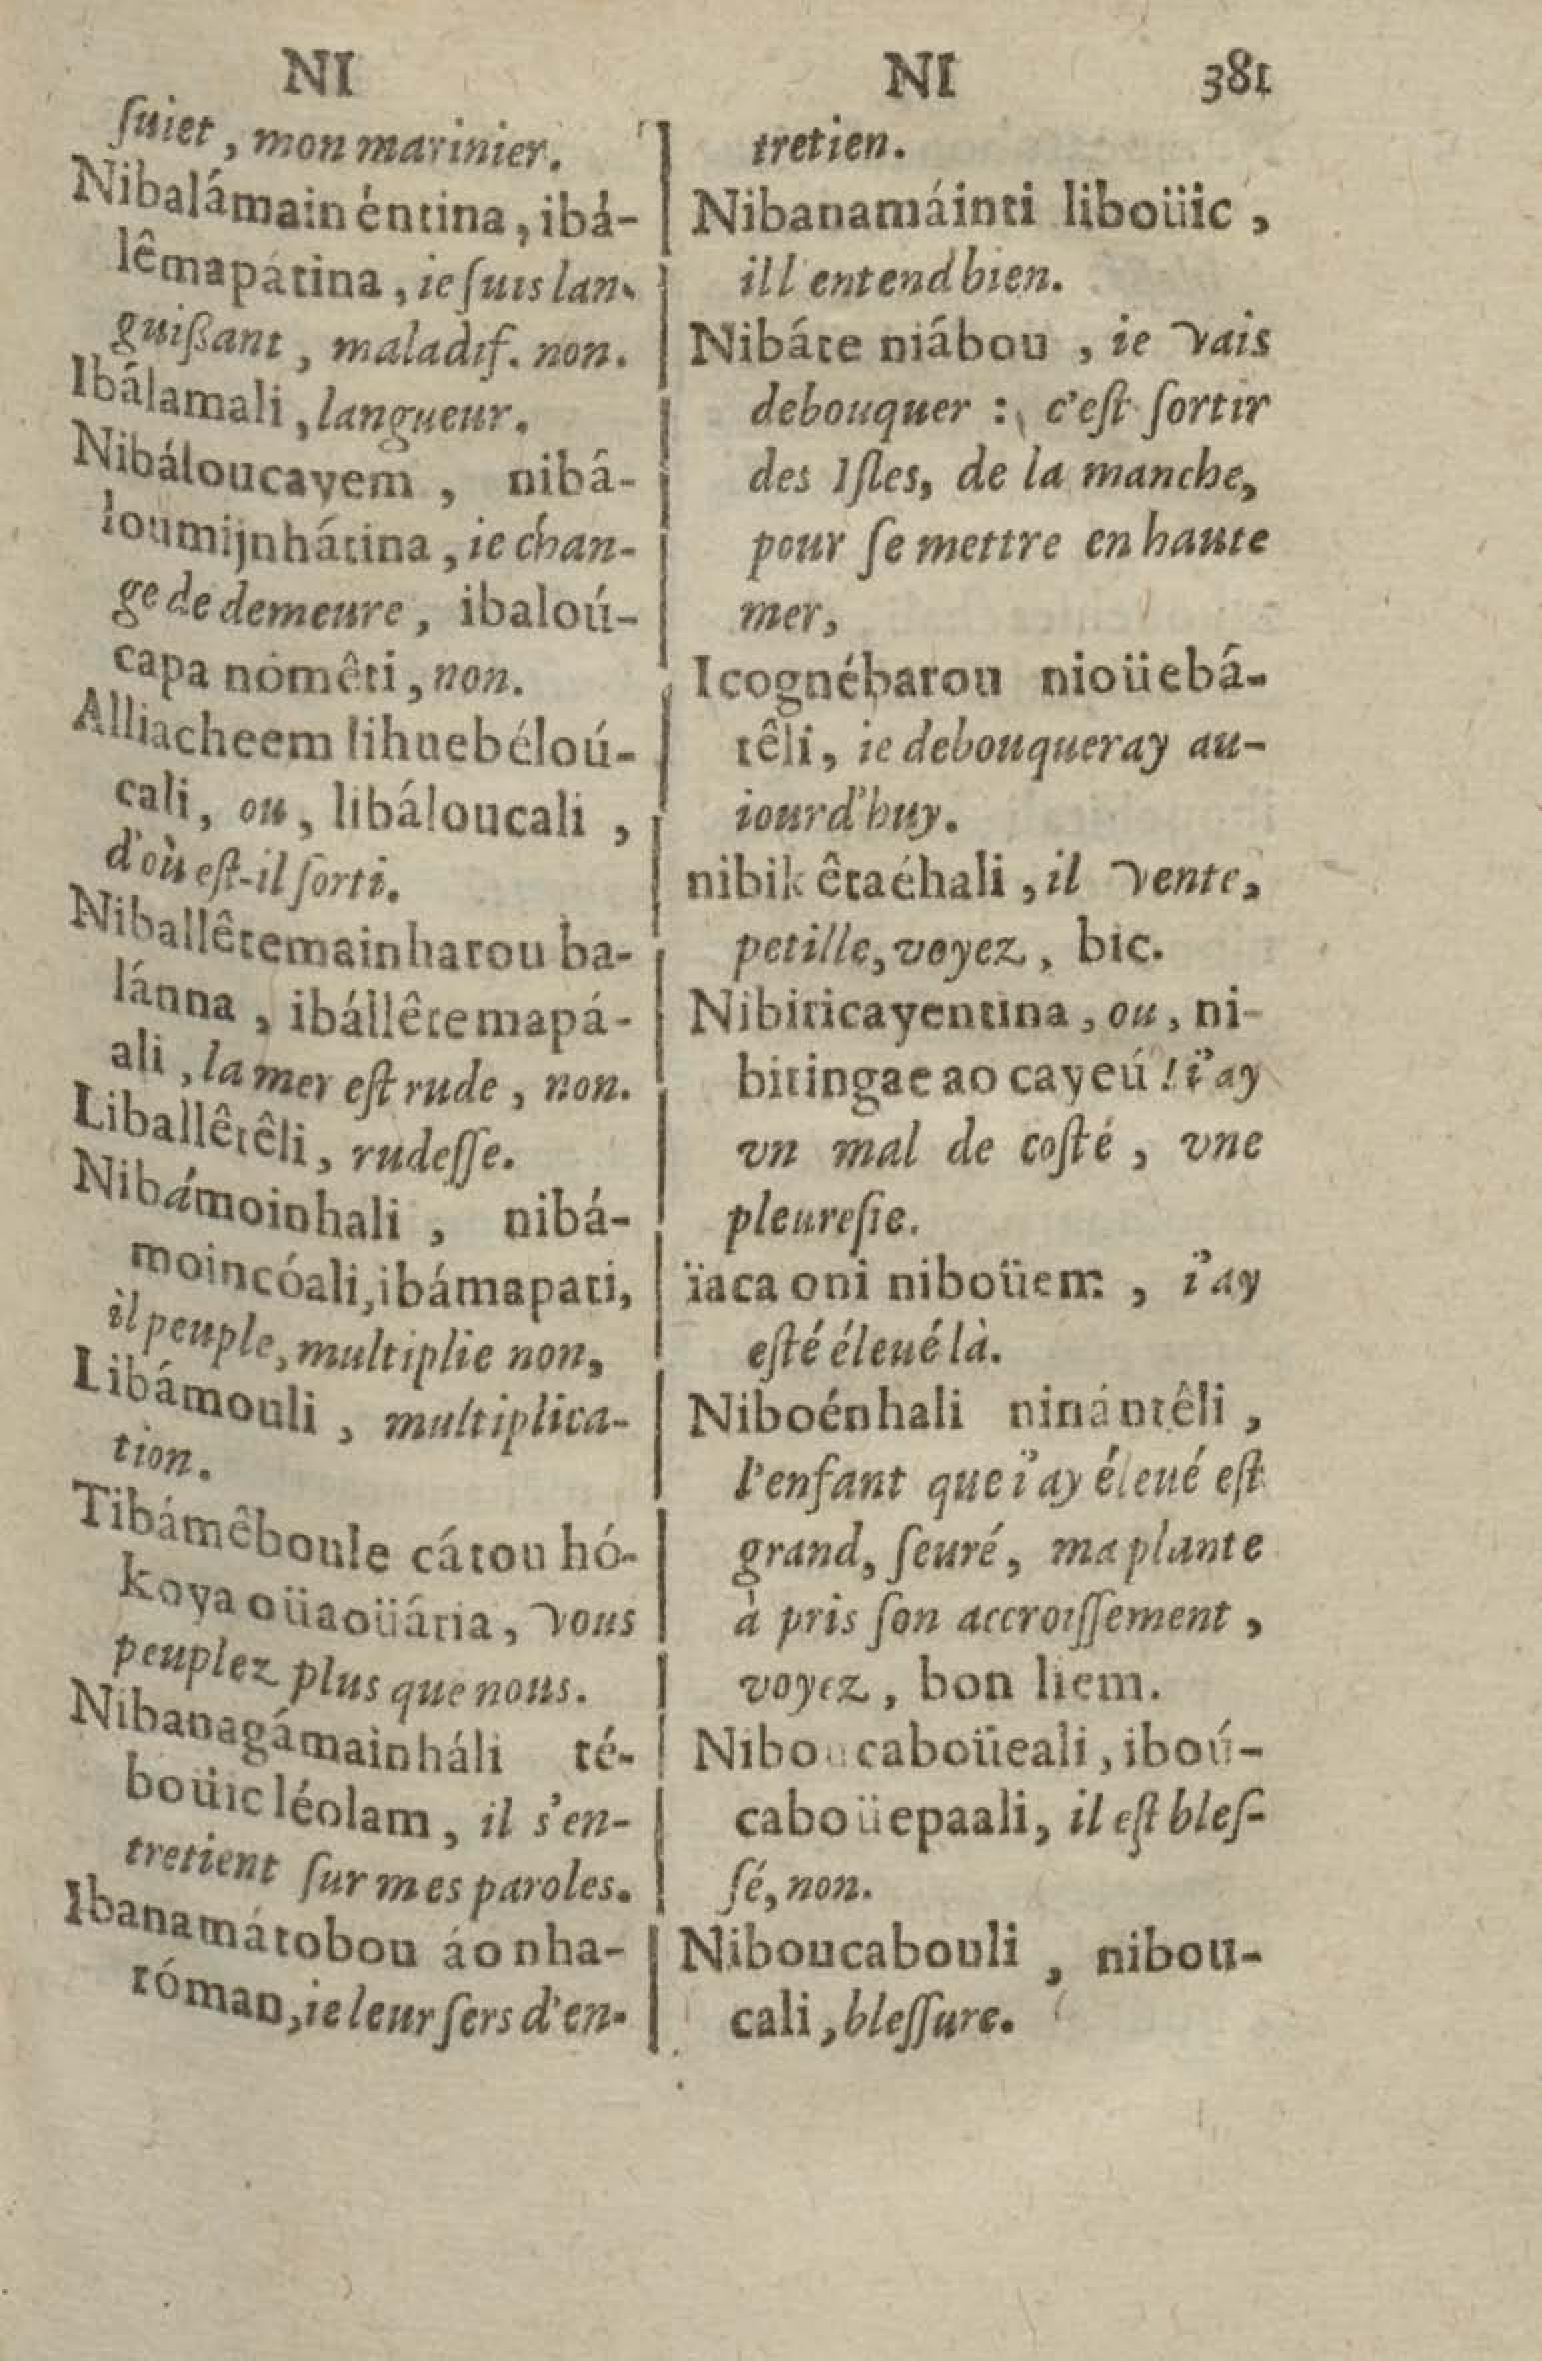 NI
ſuiet, mon marinier.
Nibalámain éntina, ibá-
lêmapátina, ie ſuis lan-
guiſſant, maladif. non.
Ibálamali, langueur.
Nibáloucayem, nibâ-
loumijnhátina, ie chan-
ge de demeure, ibaloú-
capa nómêti, non.
Alliacheem lihuebéloú-
cali, ou, libáloucali,
d'où eſt-il ſorti.
Niballêtemainharou ba-
lánna, ibállêtemapá-
ali, la mer eſt rude, non.
Liballêtêli, rudeſſe.
Nibámoinhali, nibá-
moincóali, ibámapati,
il peuple, multiplie non,
Libámouli, multiplica-
tion.
Tibámêboule cátou hó-
koya oüaoüária, vous
peuplez plus que nous.
Nibanagámainháli té-
boüic léolam, il s'en-
tretient ſur mes paroles.
Ibanamátobou áo nha-
róman, ie leur ſers d'en-
NI 381
tretien.
Nibanamáinti liboüic,
ill entend bien.
Nibáte niábou, ie vais
debouquer: c'eſt ſortir
des Iſles, de la manche,
pour ſe mettre en haute
mer,
Icognébarou nioüebâ-
têli, ie debouqueray au-
iourd'huy.
nibik êtaéhali, il vente,
petille, voyez, bic.
Nibiticayentina, ou, ni-
bitingae ao cayeú! i'ay
vn mal de coſté, vne
pleureſie.
ïaca oni niboüem, i'ay
eſté éleué là.
Niboénhali ninántêli,
l'enfant que i'ay éleué eſt
grand, ſeuré, ma plante
à pris ſon accroiſſement,
voyez, bon liem.
Niboucaboüeali, iboú-
caboüepaali, il eſt bleſ-
ſé, non.
Niboucabouli, nibou-
cali, bleſſure.